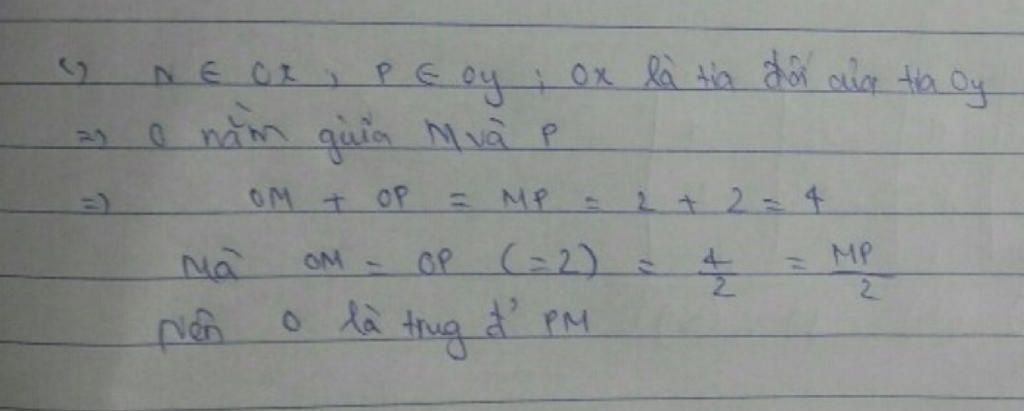 c) M ∈ Ox, P ∈ Oy; Ox là tia đối của tia Oy
=> O nằm giữa M và P
=> OM + OP = MP = 2 + 2 = 4
Mà OM = OP (=2) = 4/2 = MP/2
Nên O là trug đ' PM